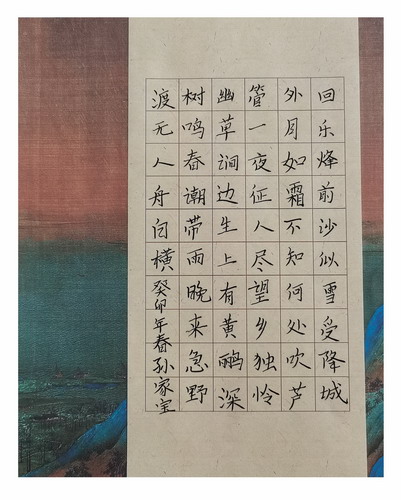 回乐烽前沙似雪受降城
外月如霜不知何处吹芦
管一夜征人尽望乡独怜
幽草涧边生上有黄鹂深
树鸣春潮带雨晚来急野
渡无人舟自横癸卯年春孙家宝